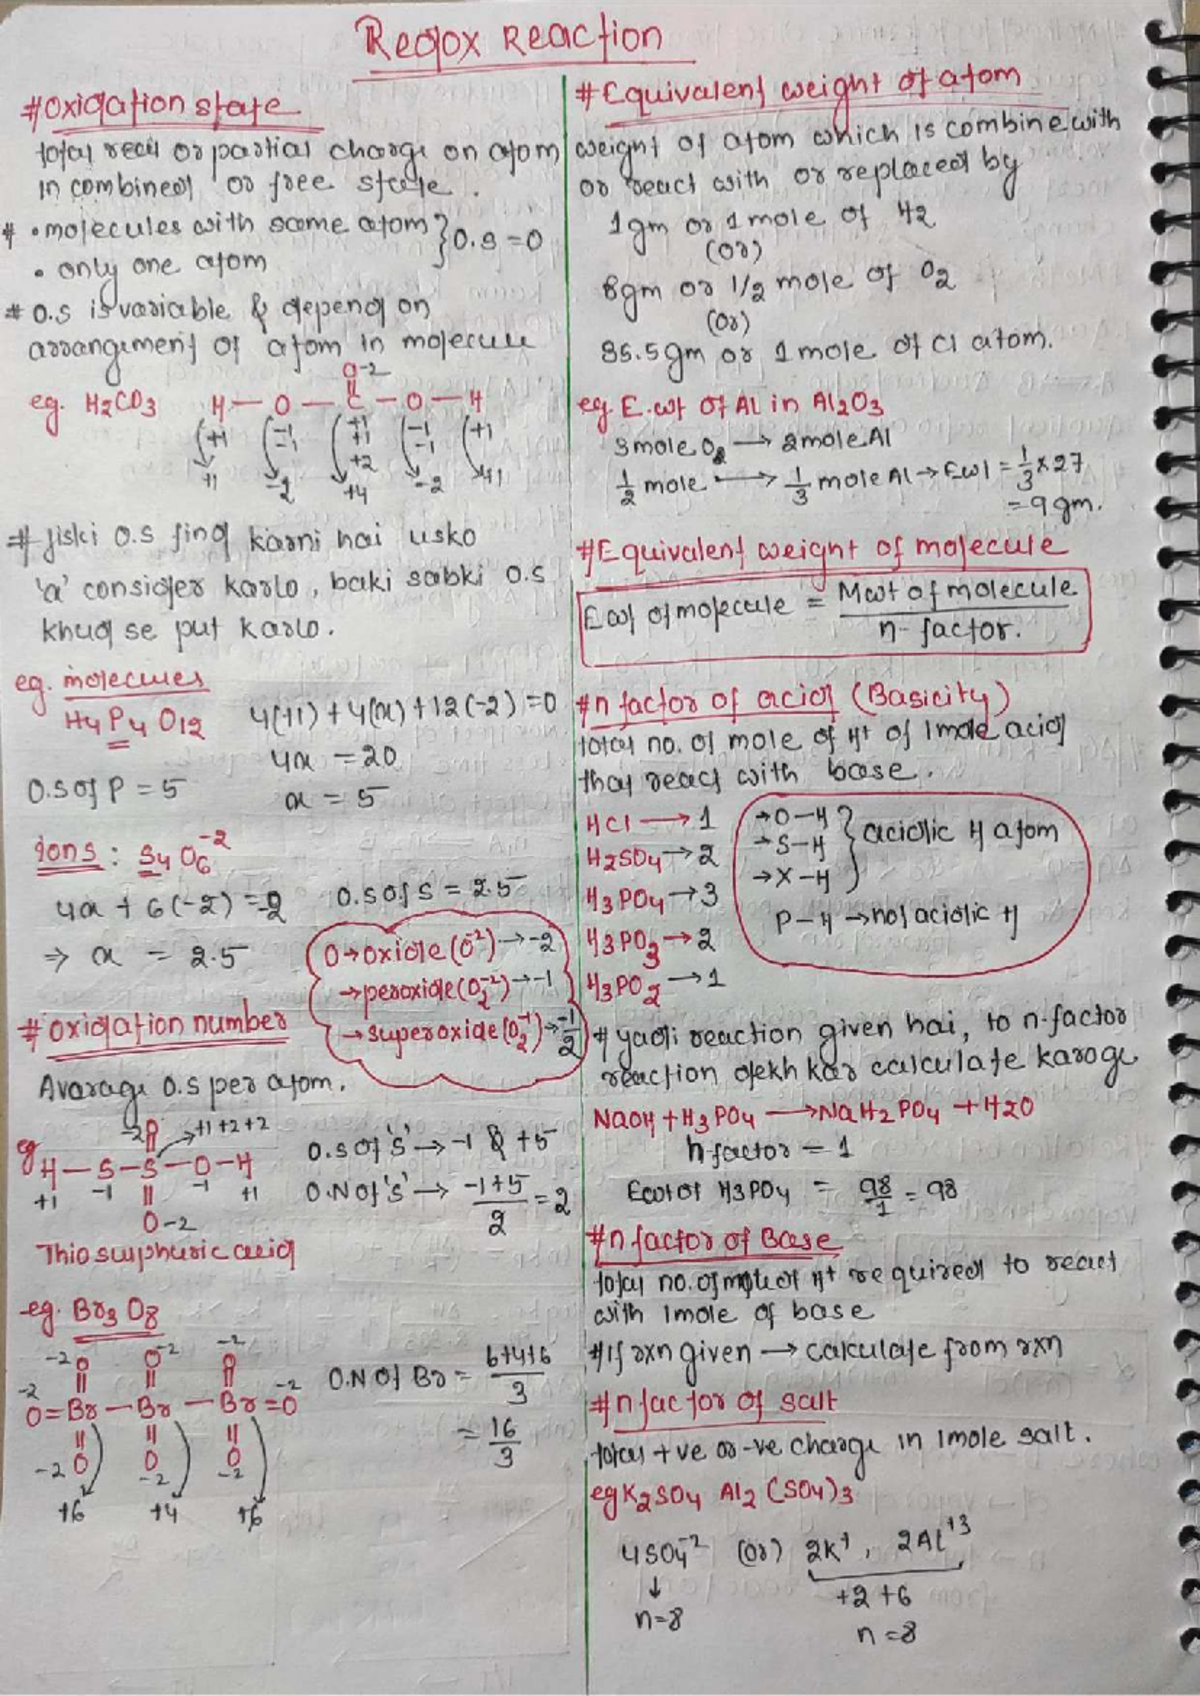 Redox Reaction
#Oxidation state
total real or partial charge on atom
in combined or free state.
# • molecules with same atom } O.S=0
• only one atom
# O.S is variable & depend on
arrangement of atom in molecule
O-2
eg. H2CO3 H — O — C — O — H
+1 -1 +1 -1 +1
-1 +1 -1
+2
+1 -2 +4 -2 +1
# Jiski O.S find karni hai usko
'x' consider karlo, baki sabki O.S
khud se put karlo.
eg. molecules
H4P4O12 4(+1)+4(x)+12(-2)=0
4x = 20
O.S of P = 5 x = 5
ions : S4O6-2
4x + 6(-2) = -2 O.S of S = 2.5
⇒ x = 2.5
O→oxide(O-2)→-2
→peroxide(O2-2)→-1
→superoxide(O2-1)→-1/2
# Oxidation number
Avarage O.S per atom.
eg -2O +1+2+2
H—S—S—O—H
+1 -1 -1 +1
O-2
O.S of 'S' → -1 & +5
O.N of 'S' → -1+5/2 = 2
Thiosulphuric acid
eg. Br3O8
-2O O-2 -2O
-2 O=Br—Br—Br=O -2
-2O O-2 O-2
+6 +4 +6
O.N of Br = 6+4+6/3
= 16/3
#Equivalent weight of atom
weight of atom which is combine with
or react with or replaced by
1gm or 1 mole of H2
(or)
8gm or 1/2 mole of O2
(or)
35.5gm or 1 mole of Cl atom.
eg. E.wt of Al in Al2O3
3mole O2 → 2mole Al
1/2 mole → 1/3 mole Al → Ewt = 1/3 × 27
= 9gm.
#Equivalent weight of molecule
Ewt of molecule = Mwt of molecule / n-factor.
#n factor of acid (Basicity)
total no. of mole of H+ of 1mole acid
that react with base.
HCl → 1
H2SO4 → 2
H3PO4 → 3
H3PO3 → 2
H3PO2 → 1
→O-H
→S-H } acidic H atom
→X-H
P-H → not acidic H
# yadi reaction given hai, to n-factor
reaction dekh kar calculate karoge
NaOH + H3PO4 → NaH2PO4 + H2O
n factor = 1
Ewt of H3PO4 = 98/1 = 98
#n factor of Base
total no. of mole of H+ required to react
with 1mole of base
#If rxn given → calculate from rxn
#n factor of salt
total +ve or -ve charge in 1mole salt.
eg K2SO4 Al2(SO4)3
4SO4-2 (or) 2K+, 2Al+3
↓ +2+6
n=8 n=8